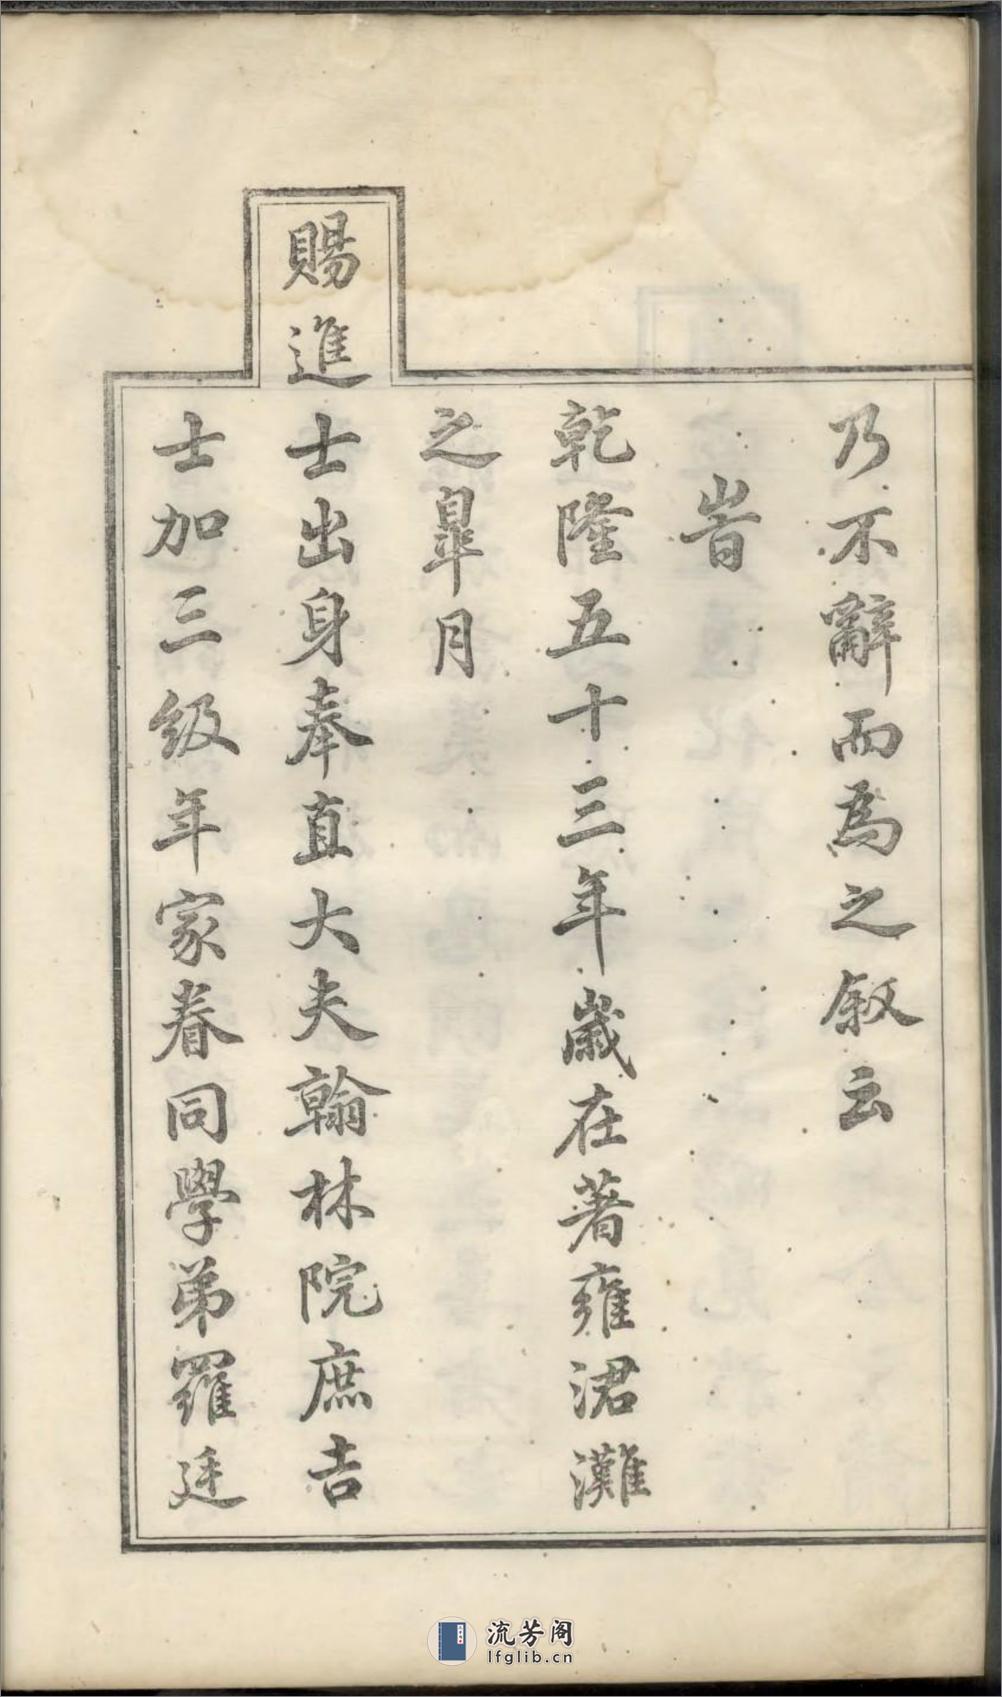 乃不辭而爲之叙云
旹
乾隆五十三年歲在著雍涒灘
之臯月
賜進士出身奉直大夫翰林院庶吉
士加三級年家眷同學弟羅廷
流芳阁
lfglib.cn